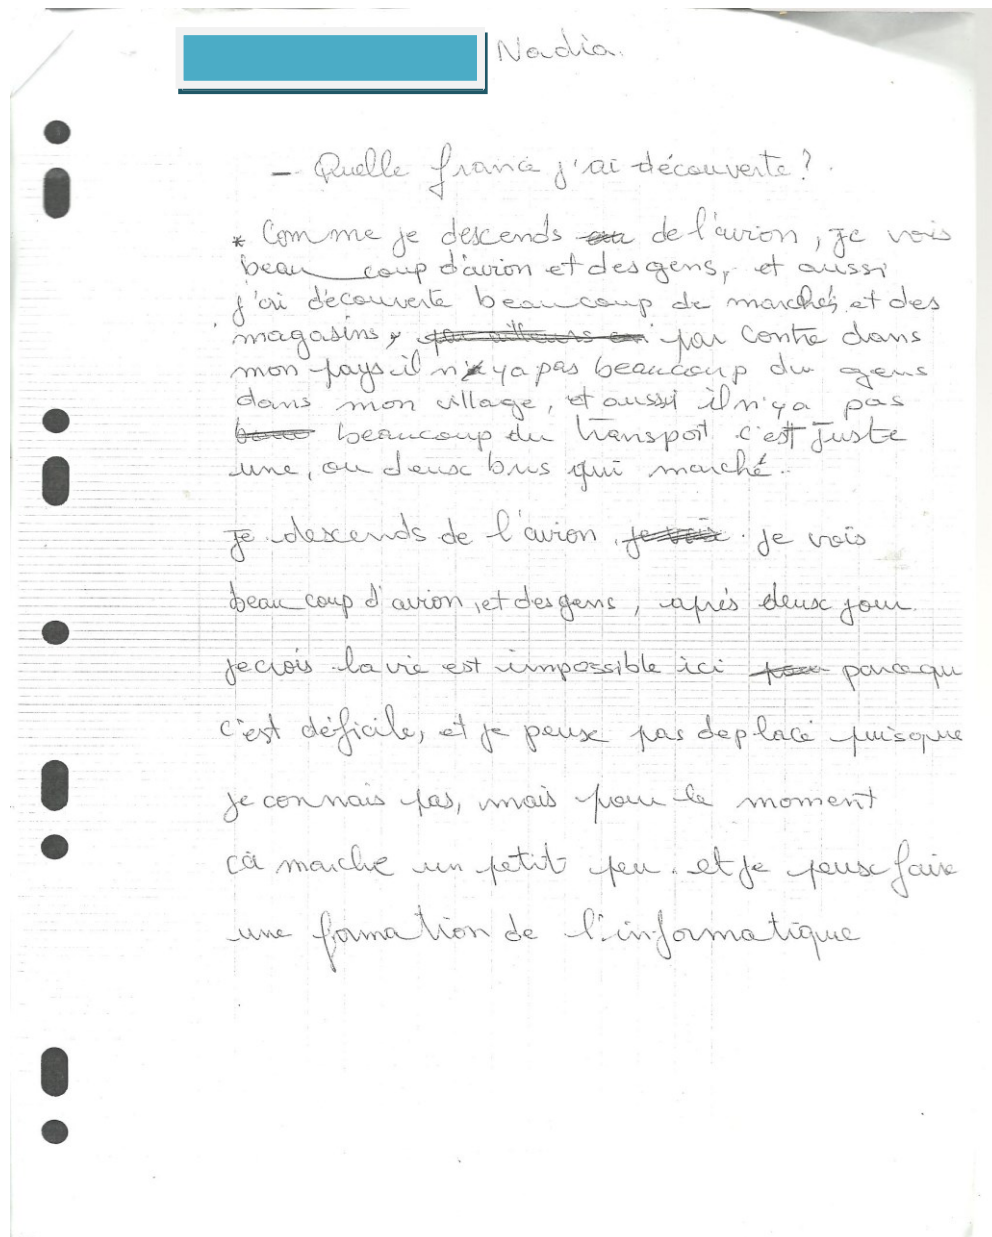 Nadia.
- Quelle france j'ai découverte?.
* Comme je descends de l'avion, je vois
beau coup d'avion et des gens, et aussi
j'ai découverte beaucoup de marchés et des
magasins, par contre dans
mon pays il n'ya pas beaucoup du gens
dans mon village, et aussi il n'ya pas
beaucoup du transport c'est juste
une, ou deux bus qui marché.
Je descends de l'avion. je vois
beau coup d'avion, et des gens, après deux jour
je crois la vie est impossible ici parcequ
c'est déficile, et je peux pas deplacé puisque
je connais pas, mais pour le moment
cà marche un petit peu. et je peux faire
une formation de l'informatique